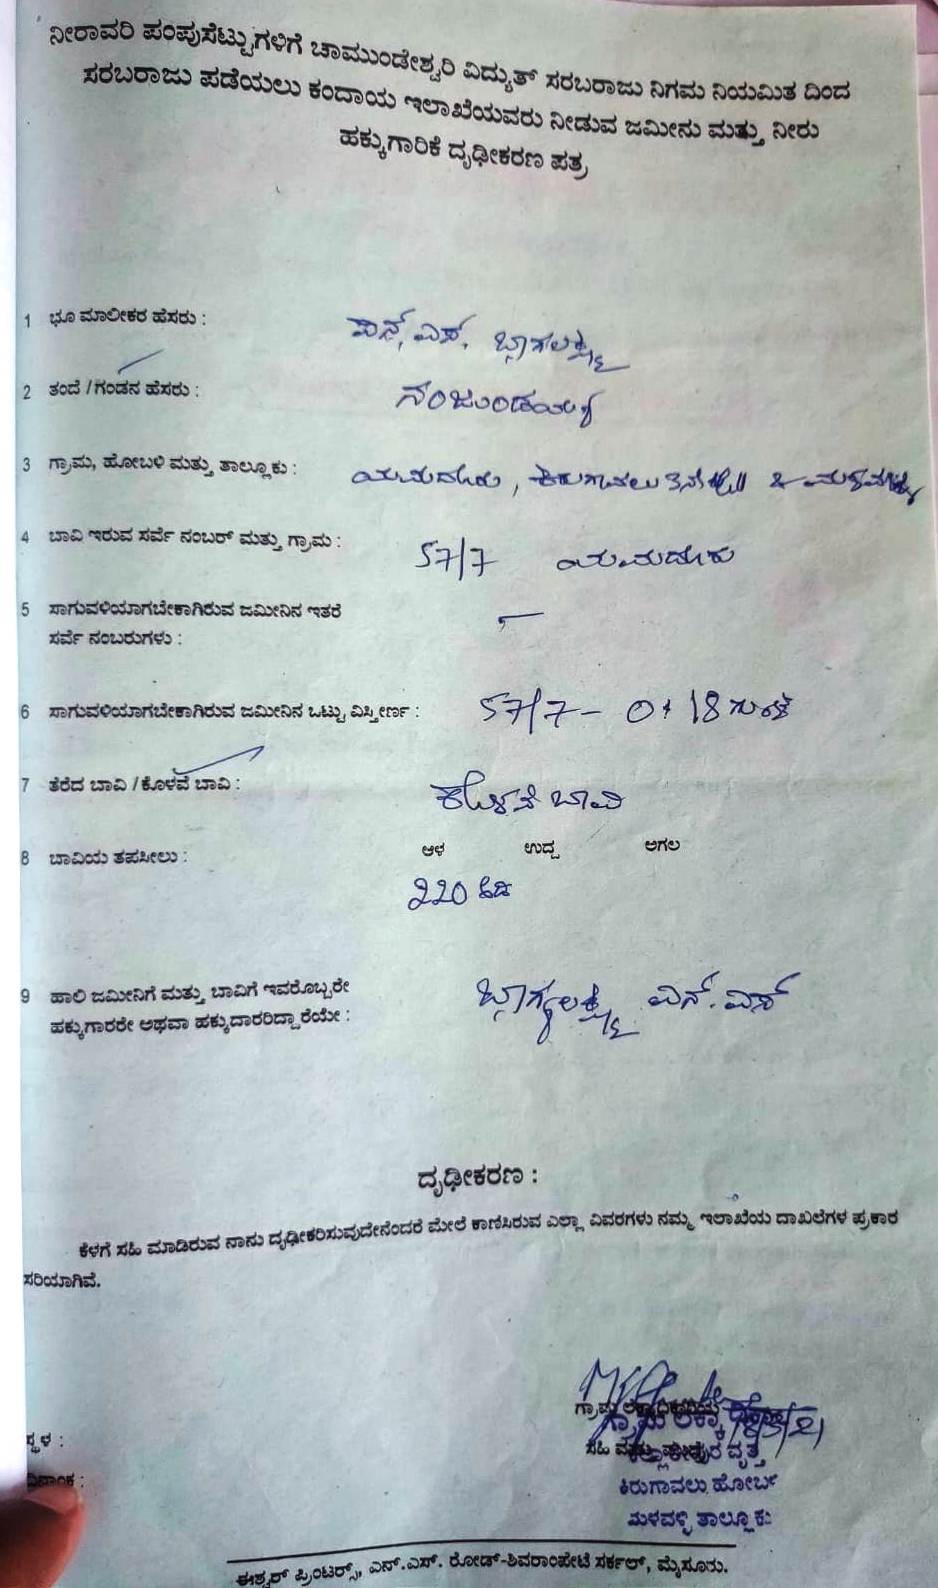 ನೀರಾವರಿ ಪಂಪುಸೆಟ್ಟುಗಳಿಗೆ ಚಾಮುಂಡೇಶ್ವರಿ ವಿದ್ಯುತ್ ಸರಬರಾಜು ನಿಗಮ ನಿಯಮಿತ ದಿಂದ
ಸರಬರಾಜು ಪಡೆಯಲು ಕಂದಾಯ ಇಲಾಖೆಯವರು ನೀಡುವ ಜಮೀನು ಮತ್ತು ನೀರು
ಹಕ್ಕುಗಾರಿಕೆ ದೃಢೀಕರಣ ಪತ್ರ
1 ಭೂ ಮಾಲೀಕರ ಹೆಸರು : ಎನ್. ಎಸ್. ಭಾಗ್ಯಲಕ್ಷ್ಮಿ
2 ತಂದೆ / ಗಂಡನ ಹೆಸರು : ನಂಜುಂಡಯ್ಯ
3 ಗ್ರಾಮ, ಹೋಬಳಿ ಮತ್ತು ತಾಲ್ಲೂಕು : ಯಮದೂರು, ಕಿರುಗಾವಲು
4 ಬಾವಿ ಇರುವ ಸರ್ವೆ ನಂಬರ್ ಮತ್ತು ಗ್ರಾಮ : 57/7 ಯಮದೂರು
5 ಸಾಗುವಳಿಯಾಗಬೇಕಾಗಿರುವ ಜಮೀನಿನ ಇತರೆ
ಸರ್ವೆ ನಂಬರುಗಳು : -
6 ಸಾಗುವಳಿಯಾಗಬೇಕಾಗಿರುವ ಜಮೀನಿನ ಒಟ್ಟು ವಿಸ್ತೀರ್ಣ : 57/7 - 0 + 18 ಗುಂಟೆ
7 ತೆರೆದ ಬಾವಿ / ಕೊಳವೆ ಬಾವಿ : ಕೊಳವೆ ಬಾವಿ
8 ಬಾವಿಯ ತಪಸೀಲು : ಆಳ ಉದ್ದ ಅಗಲ
220 ಅಡಿ
9 ಹಾಲಿ ಜಮೀನಿಗೆ ಮತ್ತು ಬಾವಿಗೆ ಇವರೊಬ್ಬರೇ
ಹಕ್ಕುಗಾರರೇ ಅಥವಾ ಹಕ್ಕುದಾರರಿದ್ದಾರೆಯೇ : ಭಾಗ್ಯಲಕ್ಷ್ಮಿ ಎನ್. ಎಸ್
ದೃಢೀಕರಣ :
ಕೆಳಗೆ ಸಹಿ ಮಾಡಿರುವ ನಾನು ದೃಢೀಕರಿಸುವುದೇನೆಂದರೆ ಮೇಲೆ ಕಾಣಿಸಿರುವ ಎಲ್ಲಾ ವಿವರಗಳು ನಮ್ಮ ಇಲಾಖೆಯ ದಾಖಲೆಗಳ ಪ್ರಕಾರ
ಸರಿಯಾಗಿವೆ.
ಸ್ಥಳ :
ದಿನಾಂಕ :
ಗ್ರಾಮ
ಸಹಿ ವೃತ್ತ
ಕಿರುಗಾವಲು ಹೋಬಳಿ
ಮಳವಳ್ಳಿ ತಾಲ್ಲೂಕು
ಈಶ್ವರ್ ಪ್ರಿಂಟರ್ಸ್, ಎನ್.ಎಸ್. ರೋಡ್-ಶಿವರಾಂಪೇಟೆ ಸರ್ಕಲ್, ಮೈಸೂರು.